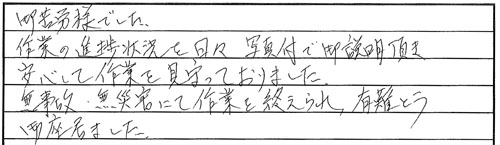 御苦労様でした.
作業の進捗状況を日々 写真付で御説明頂き
安心して作業を見守っておりました.
無事故・無災害にて作業を終えられ, 有難とう
御座居ました.